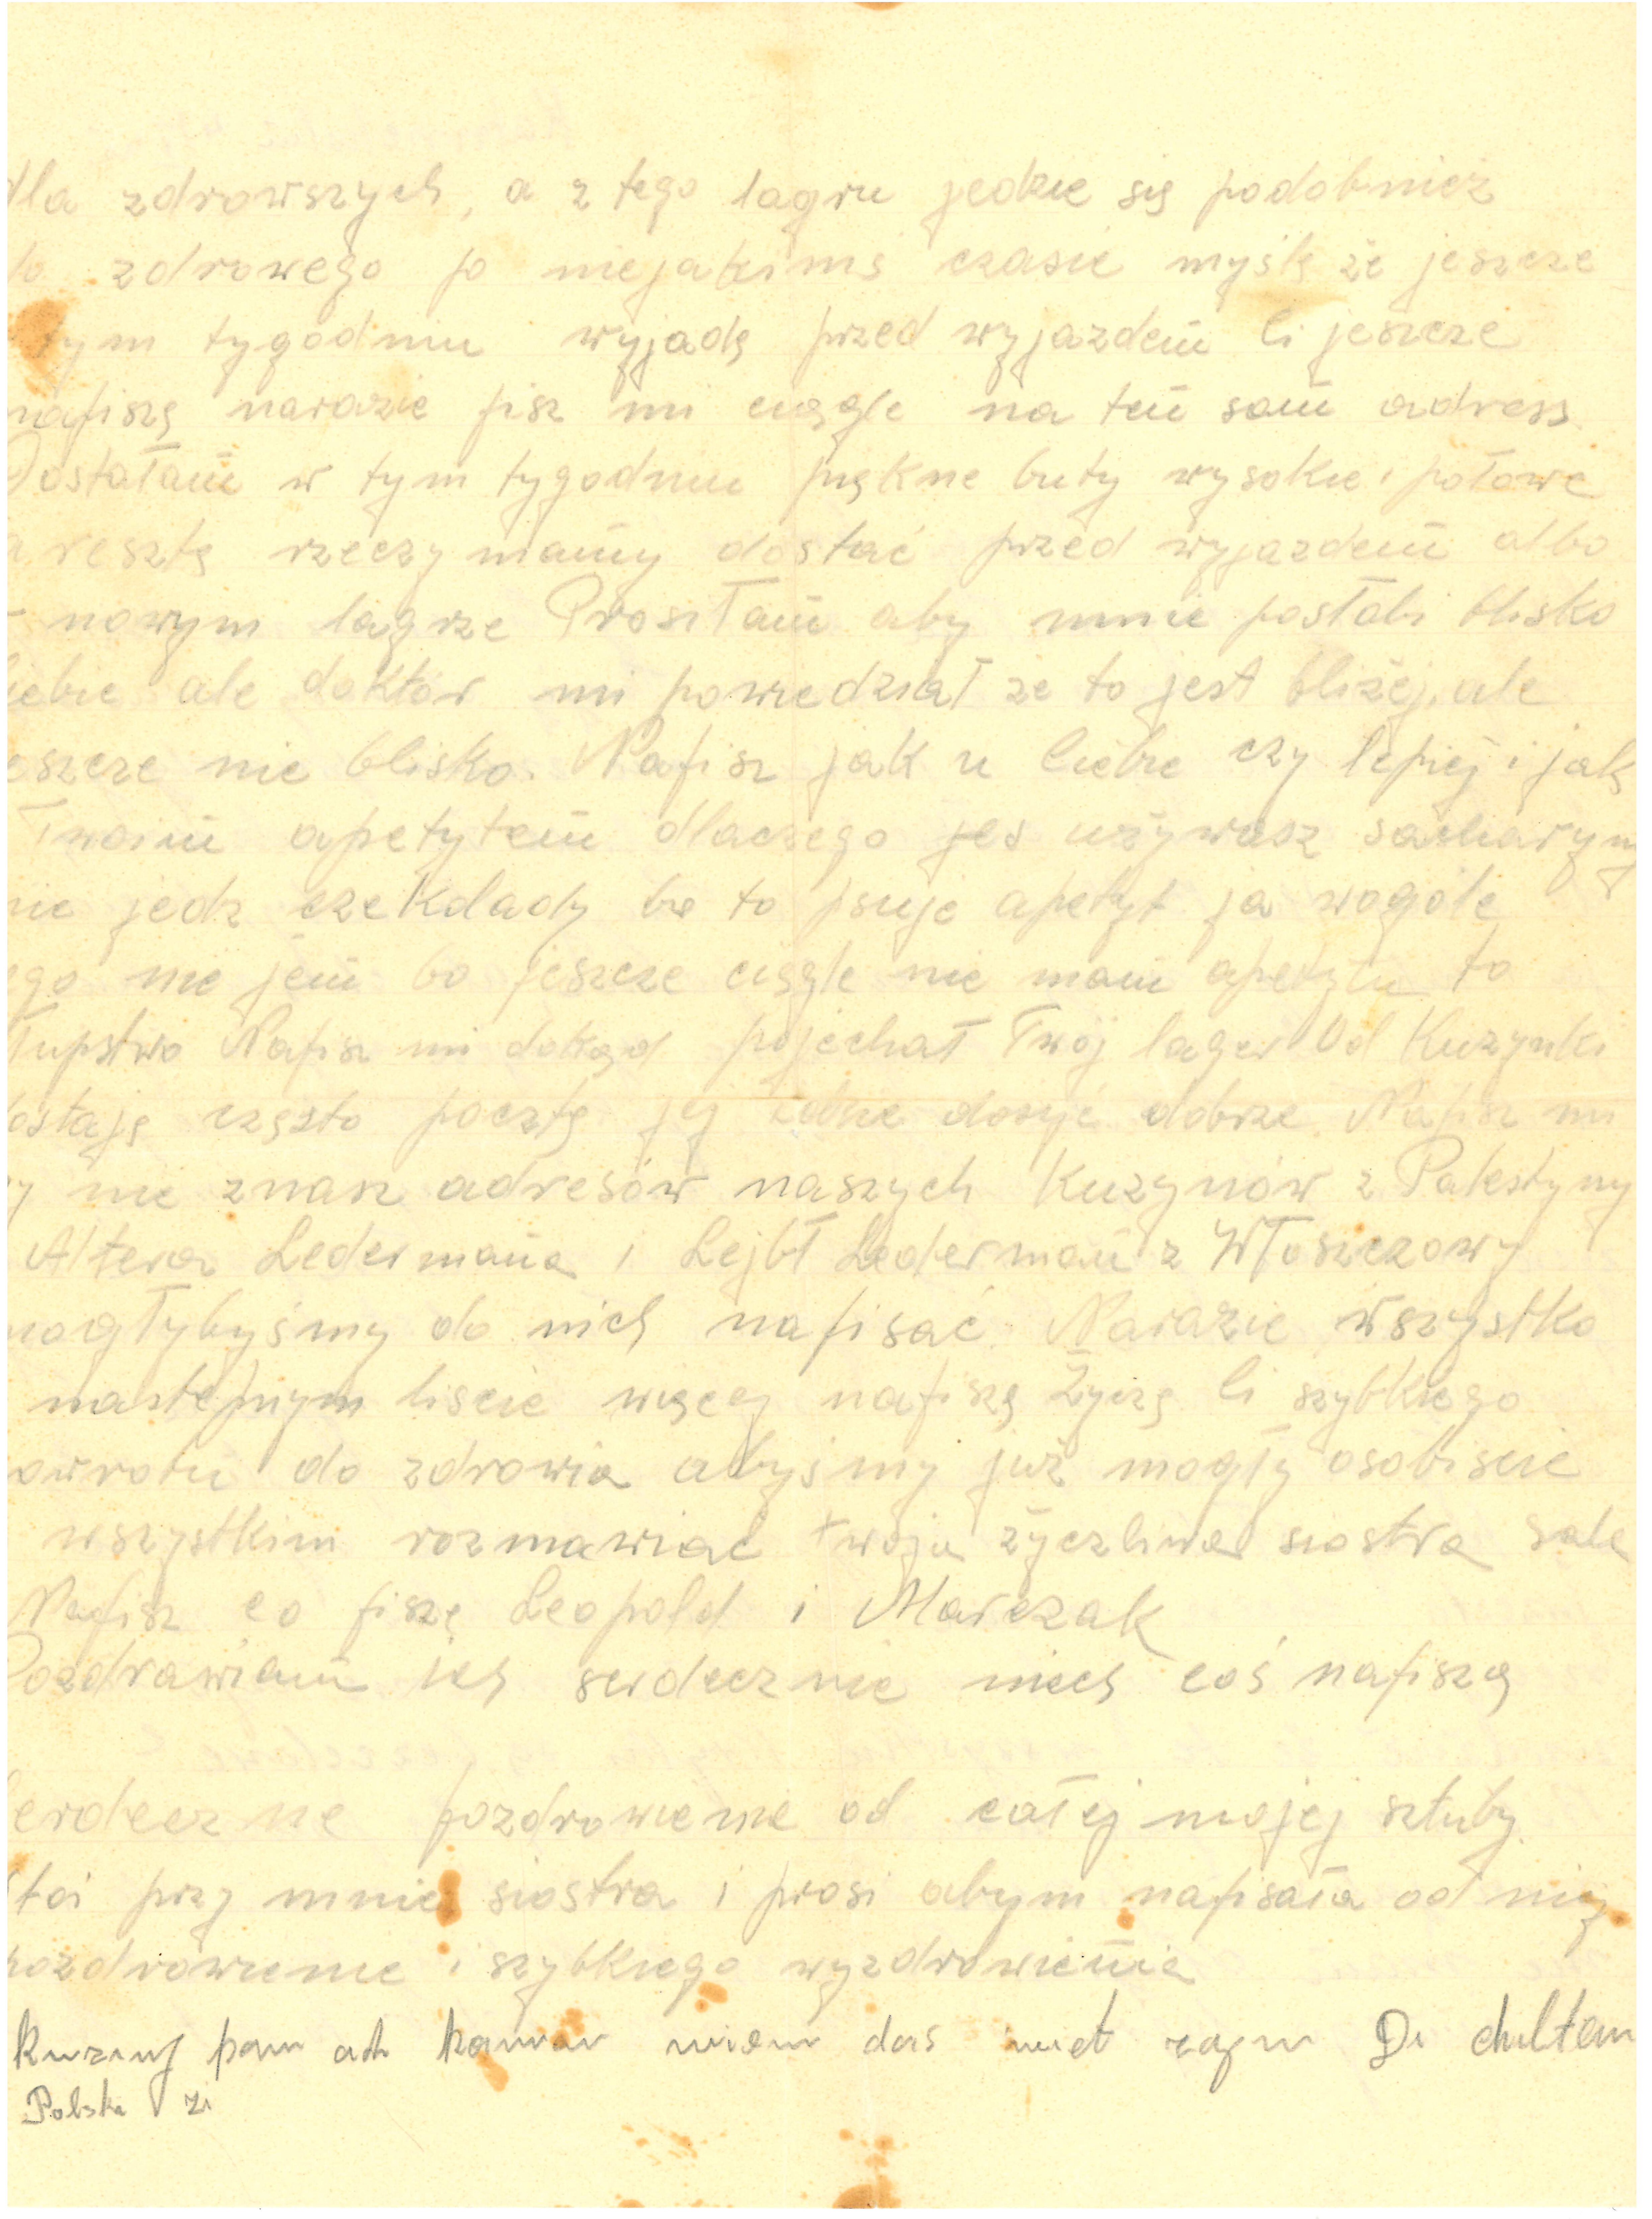 dla zdrowszych, a z tego lagru jedzie się podobnież
do zdrowego po niejakimś czasie myślę że jeszcze
tym tygodniu wyjadę przed wyjazdem Ci jeszcze
napiszę narazie pisz mi ciągle na tem sam adress.
Dostałam w tym tygodniu piękne buty wysokie i połowe
a resztę rzeczy mamy dostać przed wyjazdem albo
nowym lagrze Prosiłam aby mnie posłali blisko
ciebie ale doktór mi powiedział ze to jest bliżej, ale
jeszcze nie blisko. Napisz jak u Ciebie czy lepiej i jak
Twoim apetytem dlaczego używasz sacharyny
nie jedz czekolady bo to psuje apetyt ja wogóle
ego nie jem bo jeszcze ciągle nie mam apetytu to
łupstwo Napisz mi dokąd pojechał Twój lager Od Kuzynki
dostaję często pocztę jej dosyć dobrze. Napisz mi
y nie znasz adresów naszych Kuzynów z Palestyny
Altera Ledermana i Lejbł Lederman z Włoszczowy
mogłybyśmy do nich napisać. Narazie wszystko
nastepnym liscie więcej napiszę Życzę Ci szybkiego
owrotu do zdrowia abyśmy już mogły osobiscie
wszystkim rozmawiać twoja życzliwa siostra Sala
Napisz co piszę Leopold i Marczak
Pozdrawiam ich serdecznie niech coś napiszą
Serdeczne pozdrowienie od całej mojej sztuby.
Stoi przy mnie siostra i prosi abym napisała od niej
pozdrowienie i szybkiego wyzdrowienia
das
Polska